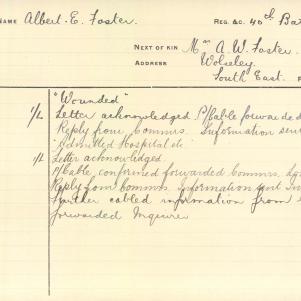 NAME Albert. E. Foster. REG. &C. 40th Ba
NEXT OF KIN Mrs A. W. Foster.
ADDRESS Wolseley.
South East.
"Wounded"
1/2 Letter acknowledged. P/Cable forwarded
Reply from Comms. Information sent
"Admitted Hospital etc"
1/2 Letter acknowledged.
P/Cable confirmed forwarded Comms.
Reply from Comms. Information sent
Further cabled information from
forwarded Inquirer